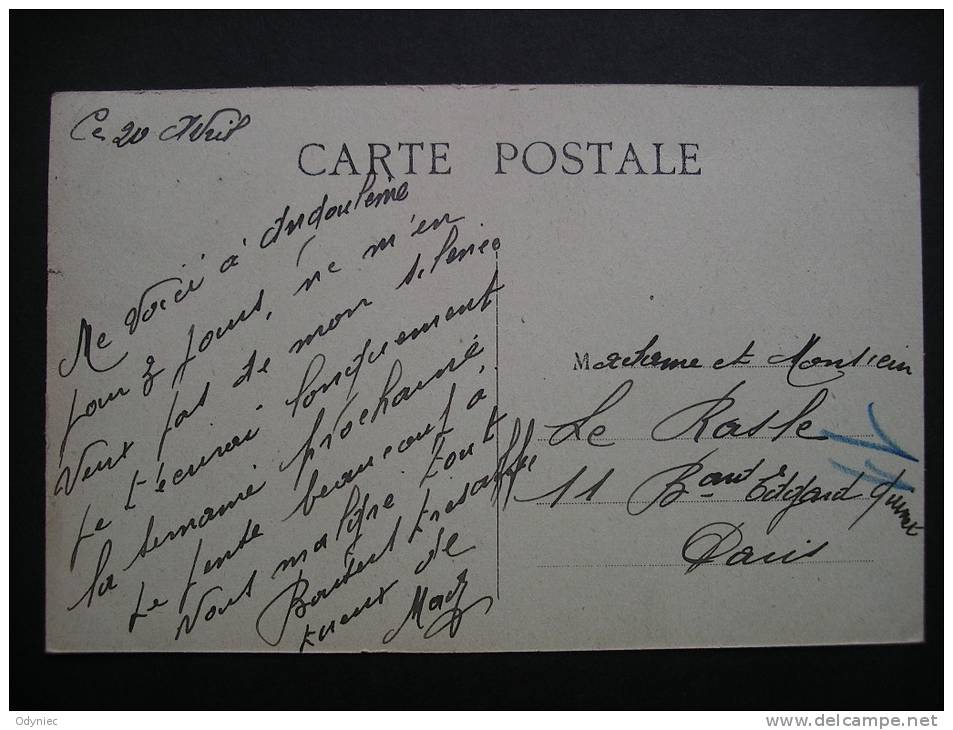 Ce 20 Avril
CARTE POSTALE
Me voici à Angoulême
pour 3 jours, ne m'en
veux pas de mon silence
je t'écrirai longuement
la semaine prochaine,
je pense beaucoup à
vous malgré tout
Baisers très affec
tueux de
Mad
Madame et Monsieur
Le Rasle
11 Bard Edgard Quinet
Paris
Odyniec
www.delcampe.net